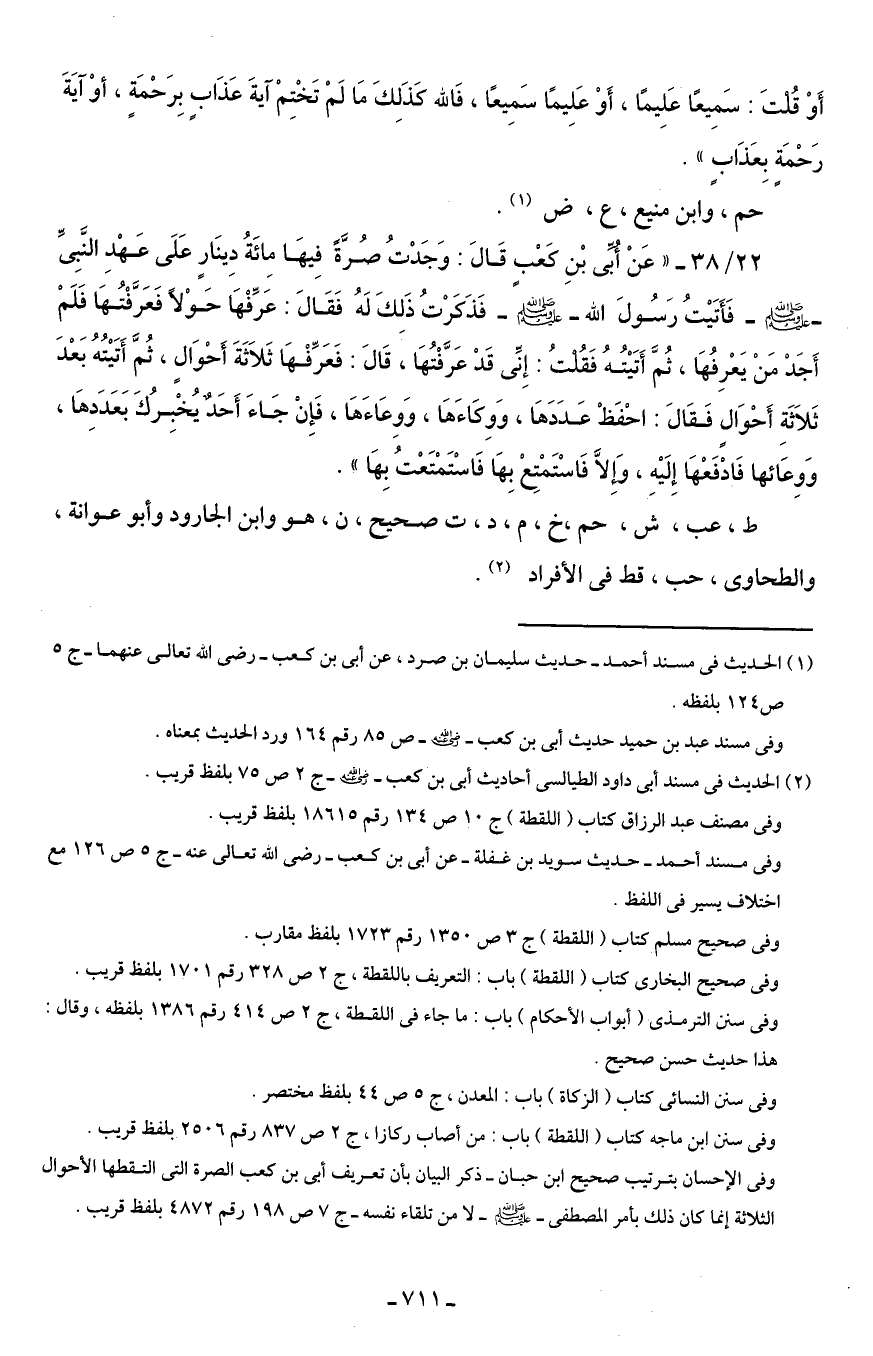 أَوْ قُلْتَ : سَمِيعًا عَلِيمًا ، أَوْ عَلِيمًا سَمِيعًا ، فَالله كَذَلِكَ مَا لَمْ تَخْتِمْ آيةَ عَذَابٍ بِرَحْمَةٍ ، أوْ آيَةَ
رَحْمَةٍ بِعَذَابٍ » .
حم ، وابن منيع ، ع ، ض (١) .
٣٨/٢٢ ـ « عَنْ أُبَىِّ بْنِ كَعْبٍ قَالَ : وَجَدْتُ صُرَّةً فِيهَا مِائَةُ دِينَارٍ عَلَى عَهْدِ النَّبِىِّ
ـ ﷺ ـ فَأَتَيْتُ رَسُولَ الله ـ ﷺ ـ فَذَكَرْتُ ذَلِكَ لَهُ فَقَالَ : عَرِّفْهَا حَوْلاً فَعَرَّفْتُهَا فَلَمْ
أَجَدْ مَنْ يَعْرِفُهَا ، ثُمَّ أَتَيْتُهُ فَقُلْتُ : إِنِّى قَدْ عَرَّفْتُهَا ، قَالَ : فَعَرِّفْهَا ثَلاَثَةَ أَحْوَالٍ ، ثُمَّ أَتَيْتُهُ بَعْدَ
ثَلاَثَةِ أَحْوَالٍ فَقَالَ : احْفَظْ عَدَدَهَا ، وَوِكَاءَهَا ، وَوِعَاءَهَا ، فَإِنْ جَاءَ أَحَدٌ يُخْبِرُكَ بَعَدَدِهَا ،
وَوِعَائِها فَادْفَعْهَا إِلَيْهِ ، وَإِلاَّ فَاسْتَمْتِعْ بِهَا فَاسْتَمْتَعْتُ بِهَا » .
ط ، عب ، ش ، حم ،خ ، م ، د ، ت صحيح ، ن ، هـ و وابن الجارود وأبو عوانة ،
والطحاوى ، حب ، قط فى الأفراد (٢) .
(١) الحديث فى مسند أحمد ـ حديث سليمان بن صرد ، عن أبى بن كعب ـ رضى الله تعالى عنهما ـ ج ٥
ص١٢٤ بلفظه .
وفى مسند عبد بن حميد حديث أبى بن كعب ـ رضي الله عنه ـ ص ٨٥ رقم ١٦٤ ورد الحديث بمعناه .
(٢) الحديث فى مسند أبى داود الطيالسى أحاديث أبى بن كعب ـ رضي الله عنه ـ ج ٢ ص ٧٥ بلفظ قريب .
وفى مصنف عبد الرزاق كتاب ( اللقطة ) ج ١٠ ص ١٣٤ رقم ١٨٦١٥ بلفظ قريب .
وفى مسند أحمد ـ حديث سويد بن غفلة ـ عن أبى بن كعب ـ رضى الله تعالى عنه ـ ج ٥ ص ١٢٦ مع
اختلاف يسير فى اللفظ .
وفى صحيح مسلم كتاب ( اللقطة ) ج ٣ ص ١٣٥٠ رقم ١٧٢٣ بلفظ مقارب .
وفى صحيح البخارى كتاب ( اللقطة ) باب : التعريف باللقطة ، ج ٢ ص ٣٢٨ رقم ١٧٠١ بلفظ قريب .
وفى سنن الترمذى ( أبواب الأحكام ) باب : ما جاء فى اللقطة ، ج ٢ ص ٤١٤ رقم ١٣٨٦ بلفظه ، وقال :
هذا حديث حسن صحيح .
وفى سنن النسائى كتاب ( الزكاة ) باب : المعدن ، ج ٥ ص ٤٤ بلفظ مختصر .
وفى سنن ابن ماجه كتاب ( اللقطة ) باب : من أصاب ركازا ، ج ٢ ص ٨٣٧ رقم ٢٥٠٦ بلفظ قريب .
وفى الإحسان بترتيب صحيح ابن حبان ـ ذكر البيان بأن تعريف أبى بن كعب الصرة التى التقطها الأحوال
الثلاثة إنما كان ذلك بأمر المصطفى ـ ﷺ ـ لا من تلقاء نفسه ـ ج ٧ ص ١٩٨ رقم ٤٨٧٢ بلفظ قريب .
ـ ٧١١ ـ